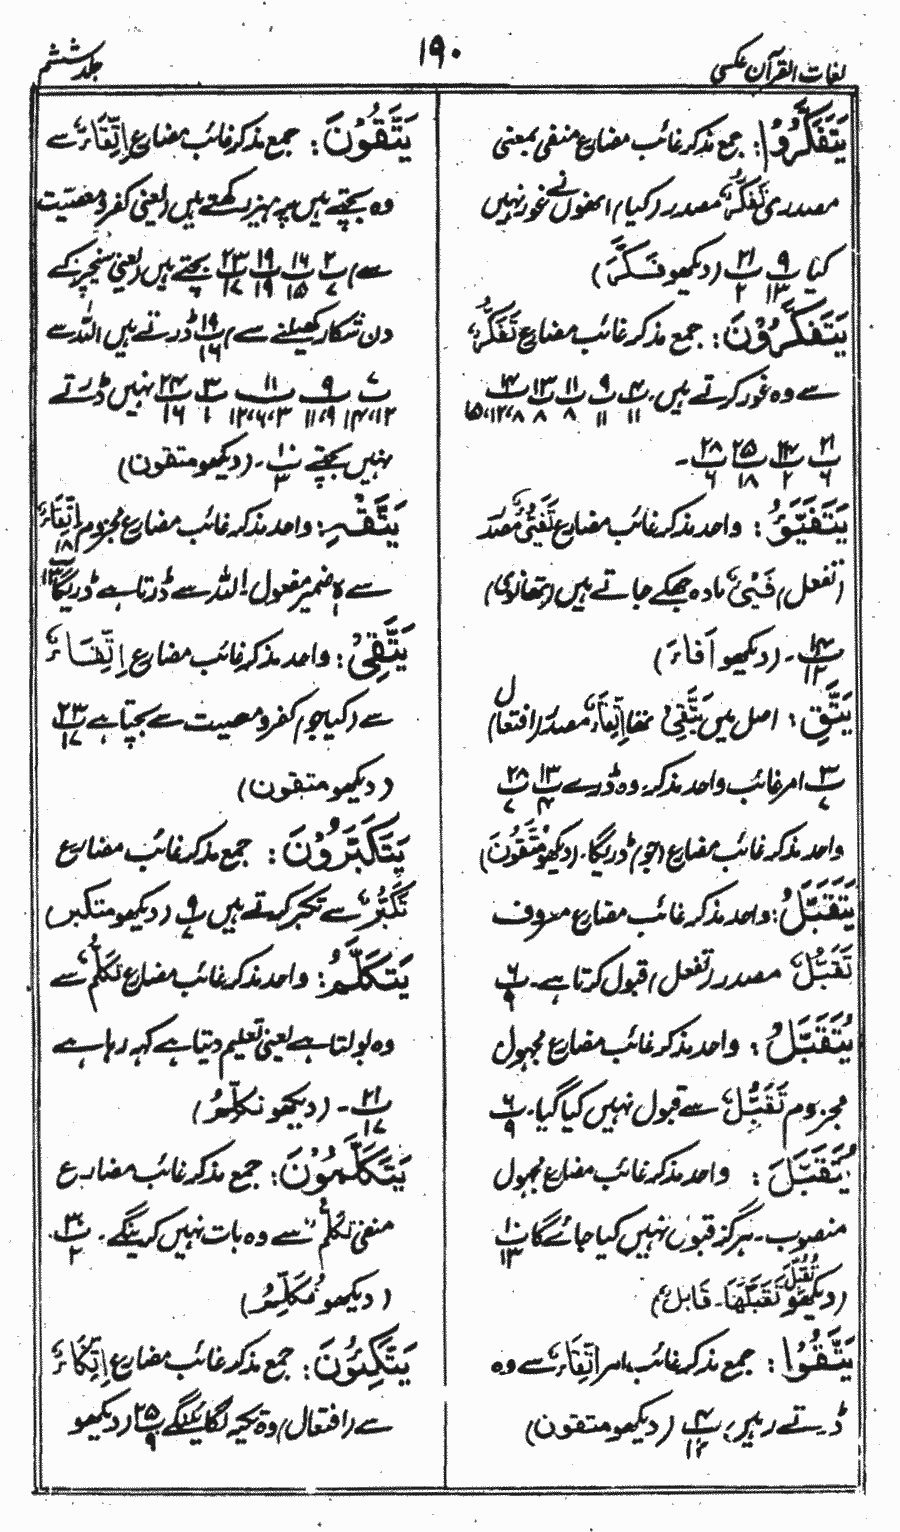 لغات القرآن عکسی
۱۹۰
جلد ششم
یَتَفَکَّرُوْا: جمع مذکر غائب مضارع منفی بمعنی
مصدری تَفَکُّرٌ مصدر (کیا) انھوں نے غور نہیں
کیا پ۹/۱۳ پ۲۱/۲ (دیکھو فَکَّرَ)
یَتَفَکَّرُوْنَ: جمع مذکر غائب مضارع تَفَکُّرٌ
سے وہ غور کرتے ہیں۔ پ۴/۱۱ پ۹/۱۱ پ۱۱/۸ پ۱۳/۸ پ۱۴/۸،۱۲،۱۵
پ۲۱/۶ پ۲۴/۲ پ۲۵/۱۸ پ۲۸/۶۔
یَتَفَیَّؤُ: واحد مذکر غائب مضارع تَفَیُّؤٌ مصدر
(تفعل) فَیْءٌ مادہ جھکے جاتے ہیں (تھانوی)
پ۱۴/۱۲۔ (دیکھو اَفَاءَ)
یَتَّقِ: اصل میں یَتَّقِیْ تھا اِتِّقَاءٌ مصدر (افتعال)
پ۳/۷ امر غائب واحد مذکر۔ وہ ڈرے پ۱۳/۴ پ۲۸/۷
واحد مذکر غائب مضارع (جو) ڈریگا۔ (دیکھو مُتَّقُوْنَ)
یَتَقَبَّلُ: واحد مذکر غائب مضارع معروف
تَقَبُّلٌ مصدر (تفعل) قبول کرتا ہے۔ پ۶/۹
یُتَقَبَّلُ: واحد مذکر غائب مضارع مجہول
مجزوم تَقَبُّلٌ سے قبول نہیں کیا گیا۔ پ۶/۹
یُتَقَبَّلَ: واحد مذکر غائب مضارع مجہول
منصوب۔ ہرگز قبول نہیں کیا جائے گا پ۱۰/۱۳
(دیکھو تَقَبَّلَ تَقَبَّلَهَا۔ قَابِلٌ)
یَتَّقُوْا: جمع مذکر غائب، امر اِتِّقَاءٌ سے وہ
ڈرتے رہیں، پ۴/۱۲ (دیکھو متقون)
یَتَّقُوْنَ: جمع مذکر غائب مضارع اِتِّقَاءٌ سے
وہ بچتے ہیں پرہیز رکھتے ہیں (یعنی کفر و معصیت
سے) پ۲/۷ پ۱۶/۱۵ پ۱۹/۱۹ پ۲۳/۱۷ بچتے ہیں (یعنی سنیچر کے
دن شکار کھیلنے سے) پ۱۹/۱۶ ڈرتے ہیں اللہ سے
پ۷/۱۲،۱۴ پ۹/۹،۱۱ پ۱۱/۳،۶،۱۲ پ۳/۱ پ۲۴/۱۶ نہیں ڈرتے
نہیں بچتے پ۱۰/۳۔ (دیکھو متقون)
یَتَّقْہِ: واحد مذکر غائب مضارع مجزوم اِتِّقَاءٌ
سے ہ ضمیر مفعول! اللہ سے ڈرتا ہے ڈریگا پ۱۸/۱۳
یَتَّقِیْ: واحد مذکر غائب مضارع اِتِّقَاءٌ
سے (کیا جو) کفر و معصیت سے بچتا ہے پ۲۳/۱۷
(دیکھو متقون)
یَتَکَبَّرُوْنَ: جمع مذکر غائب مضارع
تَکَبُّرٌ سے تکبر کرتے ہیں پ۹/۷ (دیکھو متکبر)
یَتَکَلَّمُ: واحد مذکر غائب مضارع تَکَلُّمٌ سے
وہ بولتا ہے یعنی تعلیم دیتا ہے کہہ رہا ہے
پ۲۱/۱۷۔ (دیکھو نُکَلِّمُ)
یَتَکَلَّمُوْنَ: جمع مذکر غائب مضارع
منفی تَکَلُّمٌ سے وہ بات نہیں کرینگے۔ پ۳۰/۲
(دیکھو نُکَلِّمُ)
یَتَّکِئُوْنَ: جمع مذکر غائب مضارع اِتِّکَاءٌ
سے (افتعال) وہ تکیہ لگائینگے پ۲۵/۹ (دیکھو